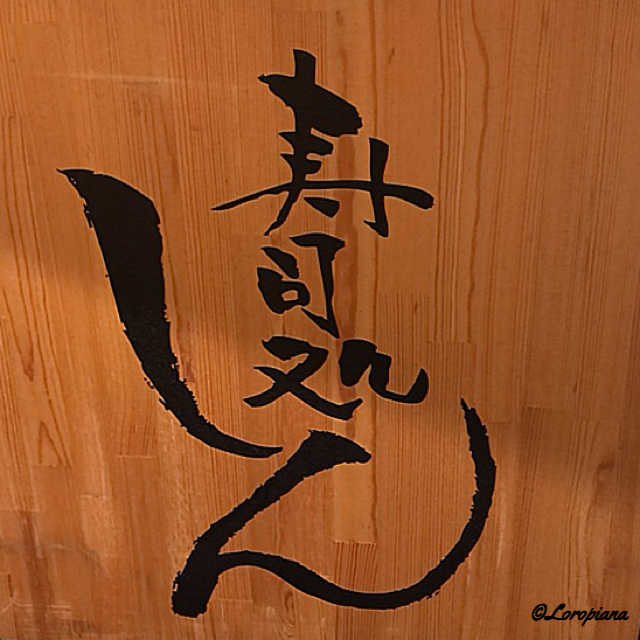 寿司処
しん
©Loropiana